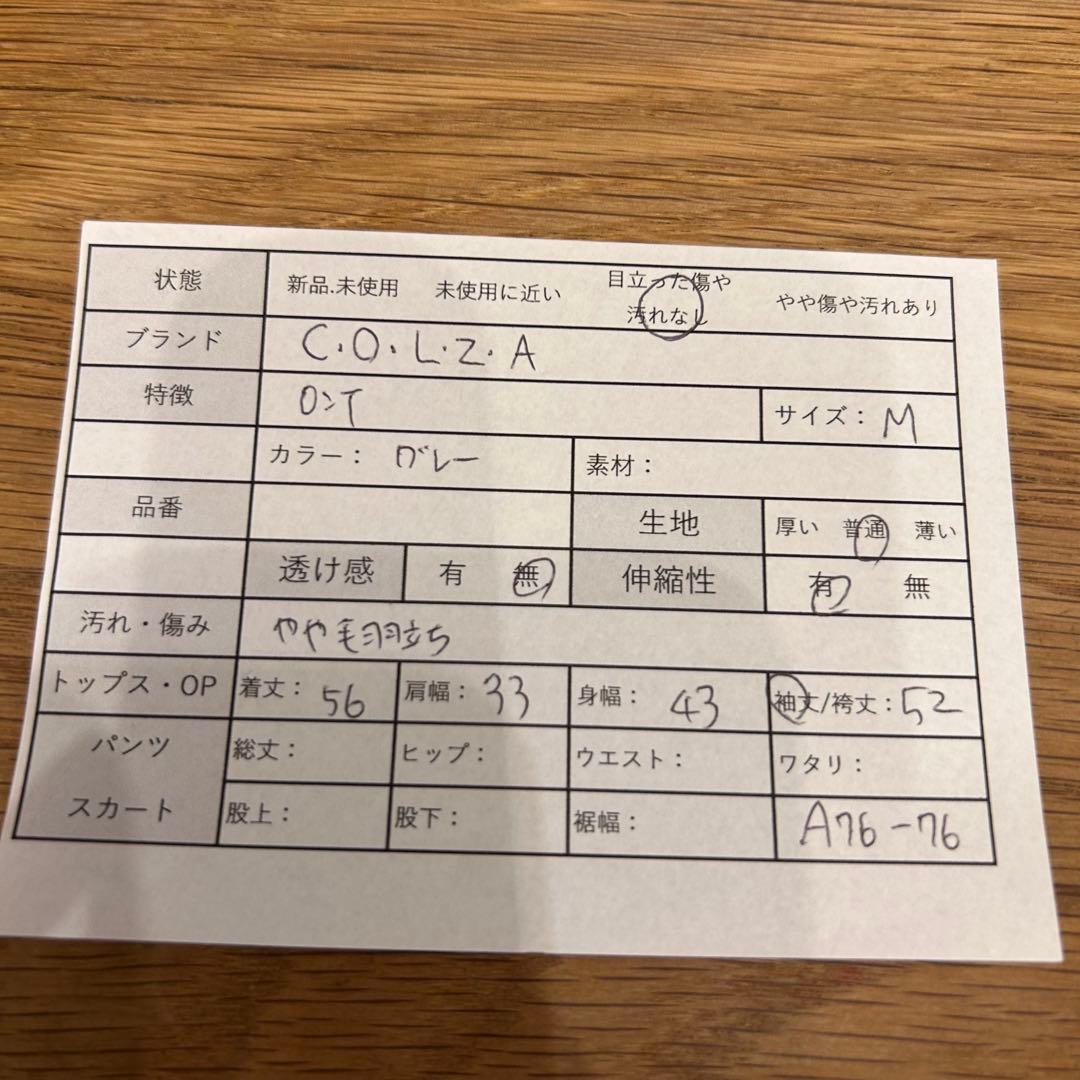 状態 新品.未使用 未使用に近い 目立った傷や汚れなし やや傷や汚れあり
ブランド C.O.L.Z.A
特徴 ロンT サイズ： M
カラー： グレー 素材：
品番 生地 厚い 普通 薄い
透け感 有 無 伸縮性 有 無
汚れ・傷み やや毛羽立ち
トップス・OP 着丈： 56 肩幅： 33 身幅： 43 袖丈/袴丈： 52
パンツ 総丈： ヒップ： ウエスト： ワタリ：
スカート 股上： 股下： 裾幅： A76-76